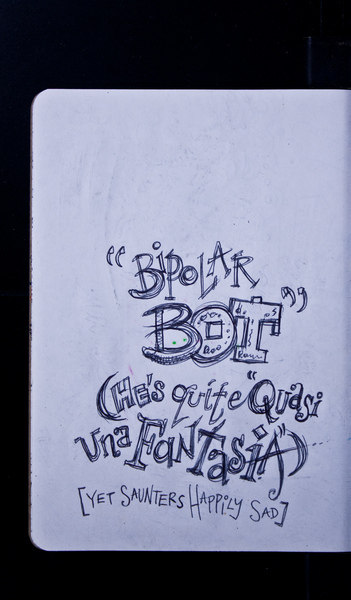 "BiPOLAR
BOT"
(HE's quite "Quasi
una FANTasiA")...
[YET SAUNTERS HAPPiLY SAD]